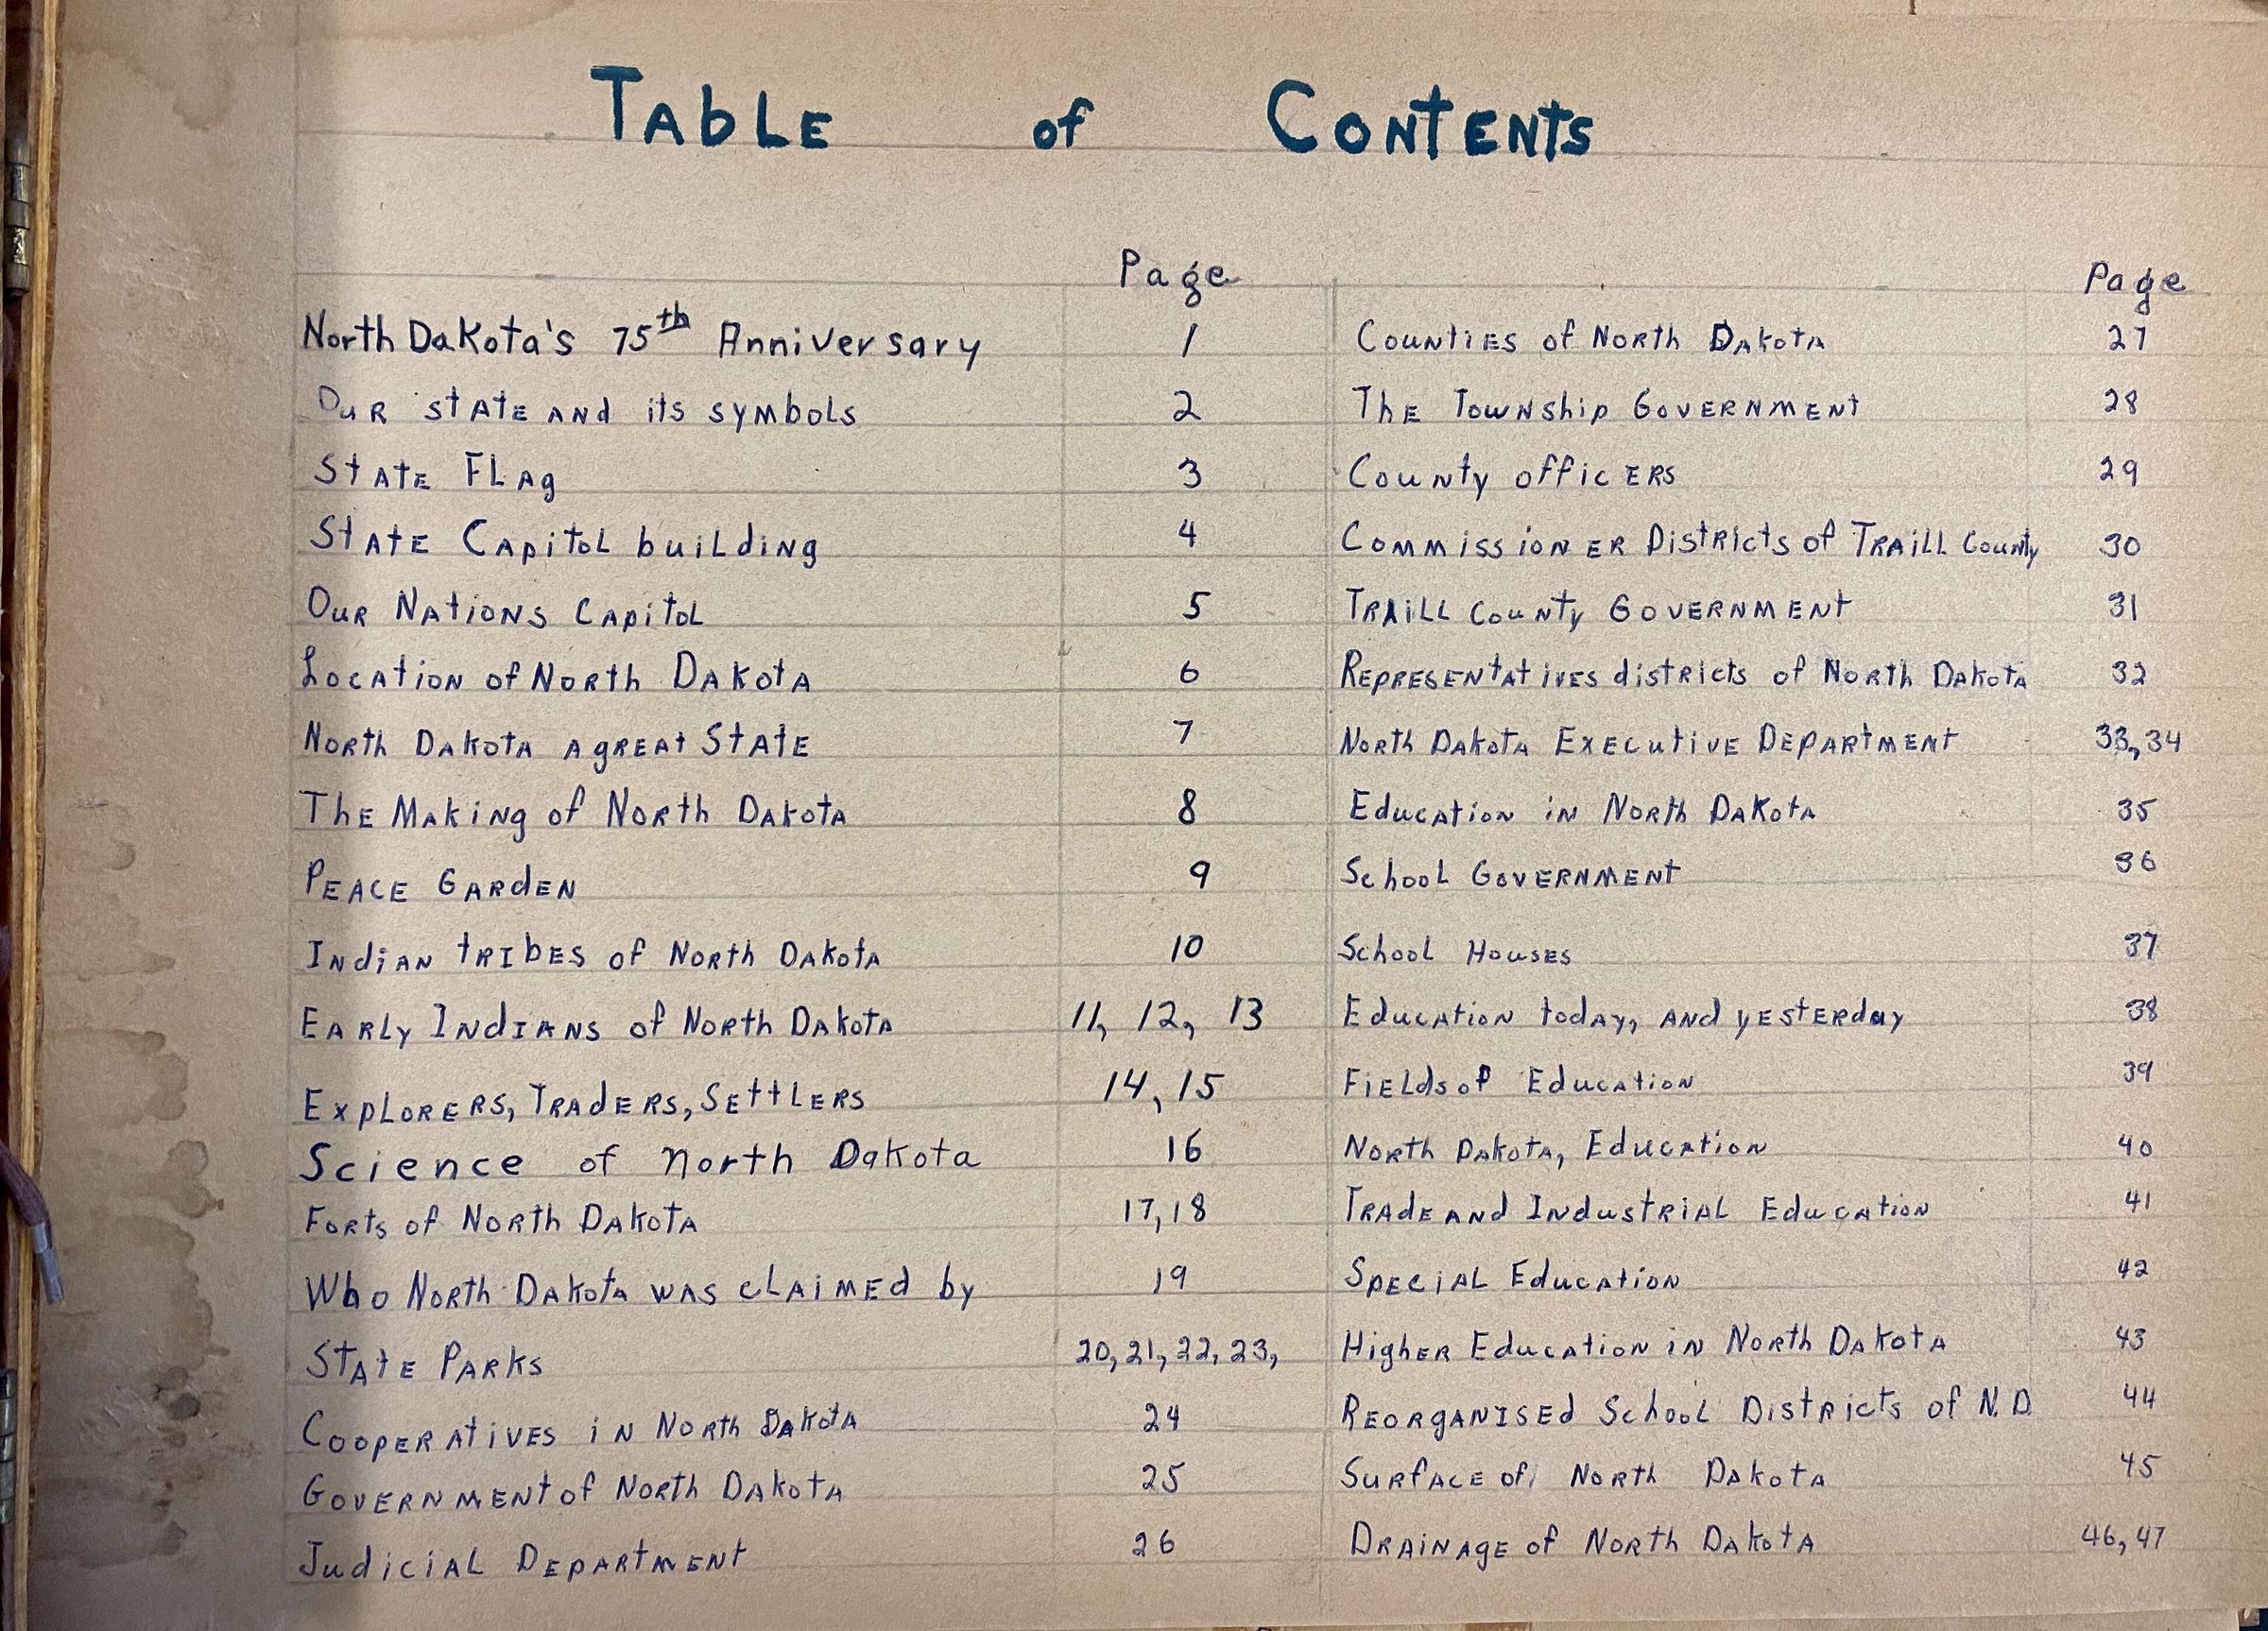 Table of Contents
Page
North Dakota's 75th Anniversary 1
Our state and its symbols 2
State Flag 3
State Capitol building 4
Our Nations Capitol 5
Location of North Dakota 6
North Dakota a great State 7
The Making of North Dakota 8
Peace Garden 9
Indian tribes of North Dakota 10
Early Indians of North Dakota 11, 12, 13
Explorers, Traders, Settlers 14, 15
Science of North Dakota 16
Forts of North Dakota 17, 18
Who North Dakota was claimed by 19
State Parks 20, 21, 22, 23,
Cooperatives in North Dakota 24
Government of North Dakota 25
Judicial Department 26
Page
Counties of North Dakota 27
The Township Government 28
County officers 29
Commissioner Districts of Traill County 30
Traill County Government 31
Representatives districts of North Dakota 32
North Dakota Executive Department 33, 34
Education in North Dakota 35
School Government 36
School Houses 37
Education today, and yesterday 38
Fields of Education 39
North Dakota, Education 40
Trade and Industrial Education 41
Special Education 42
Higher Education in North Dakota 43
Reorganised School Districts of N.D. 44
Surface of North Dakota 45
Drainage of North Dakota 46, 47